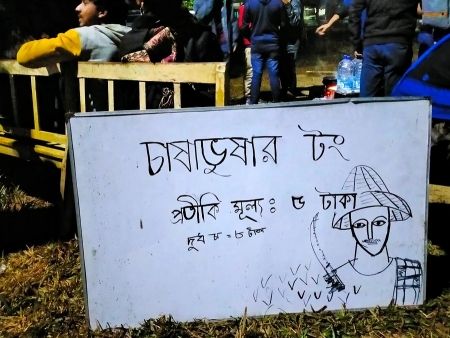 চাষাভুষার টং
প্রতীকি মূল্য: ৫ টাকা
দুধ চা = ৮ টাকা